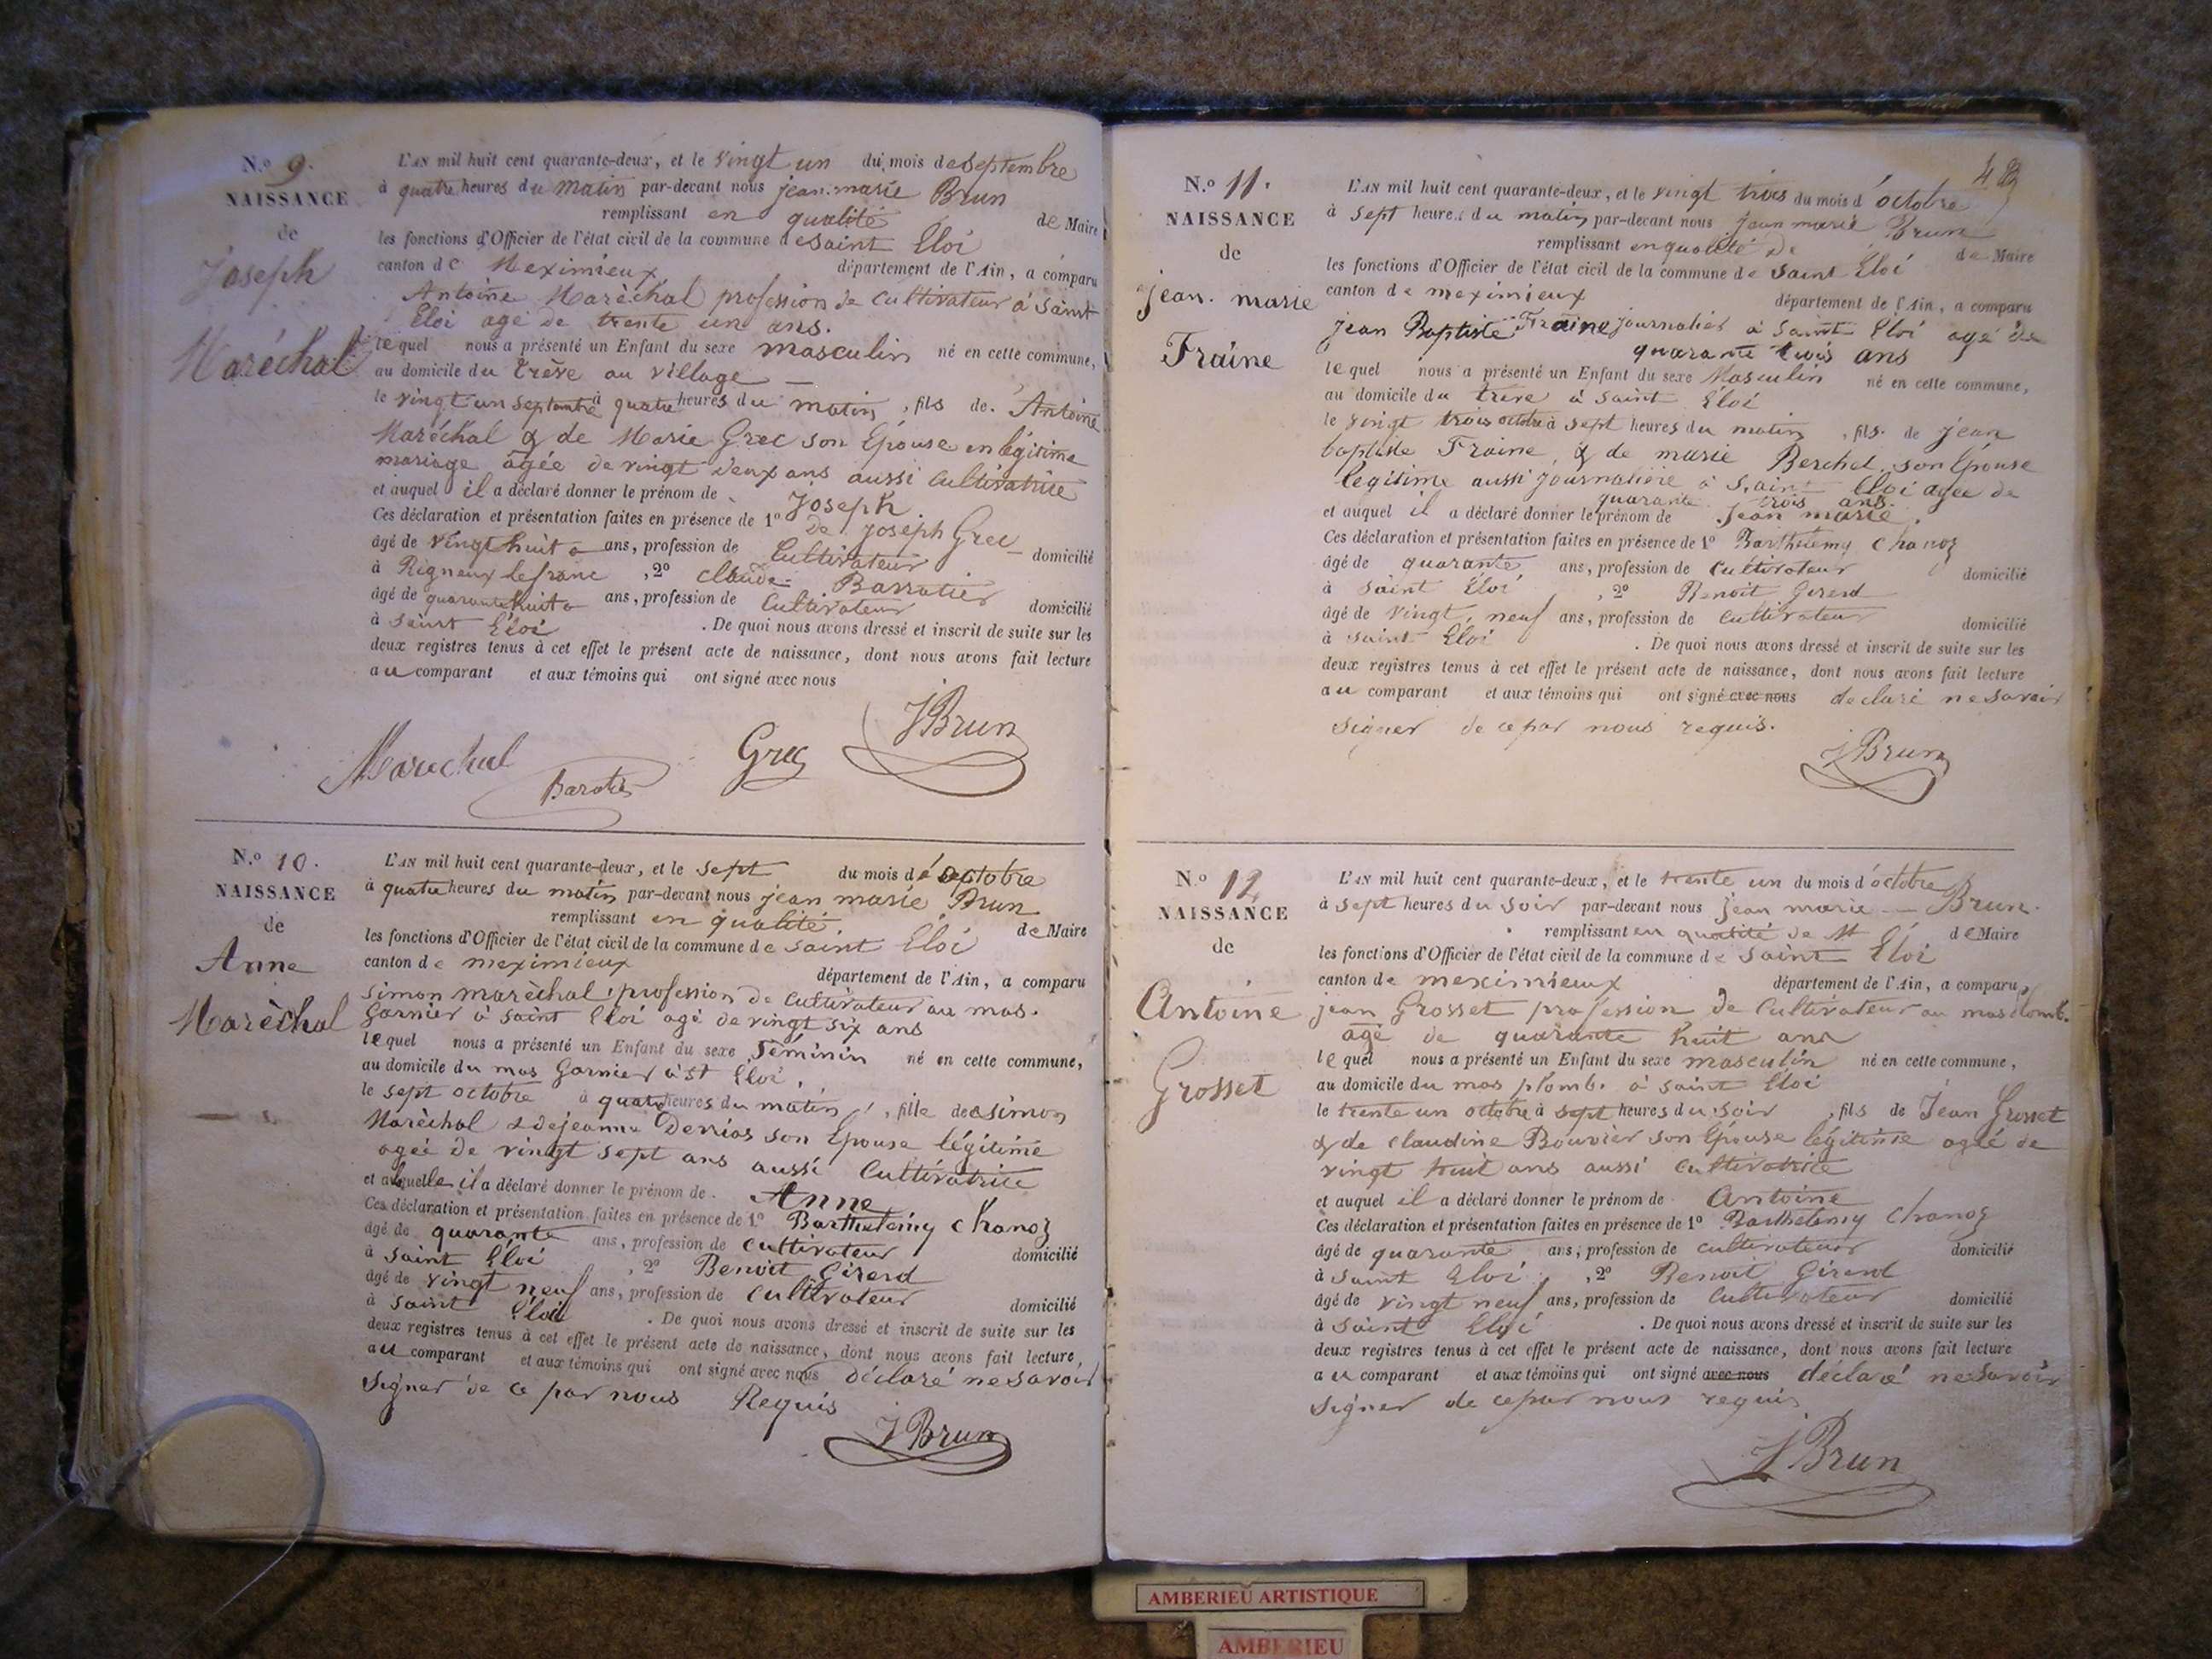 N.º 9.
NAISSANCE
de
Joseph
Maréchal
L'AN mil huit cent quarante-deux, et le vingt un du mois de septembre
à quatre heures du matin par-devant nous jean-marie Brun
remplissant en qualité de Maire
les fonctions d'Officier de l'état civil de la commune de saint Eloi
canton de Meximieux département de l'Ain, a comparu
Antoine Maréchal profession de cultivateur à saint
Eloi agé de trente un ans.
lequel nous a présenté un Enfant du sexe masculin né en cette commune,
au domicile du trève au village
le vingt un septembre à quatre heures du matin, fils de Antoine
Maréchal & de Marie Grec son Epouse en légitime
mariage âgée de vingt deux ans aussi cultivatrice
et auquel il a déclaré donner le prénom de Joseph
Ces déclaration et présentation faites en présence de 1º de joseph Grec
âgé de vingt huit ans, profession de Cultivateur domicilié
à Rigneux le franc, 2º claude Barratier
âgé de quarante huit ans, profession de Cultivateur domicilié
à saint Eloi. De quoi nous avons dressé et inscrit de suite sur les
deux registres tenus à cet effet le présent acte de naissance, dont nous avons fait lecture
au comparant et aux témoins qui ont signé avec nous
Marechal Baratier Grec JBrun
N.º 10.
NAISSANCE
de
Anne
Maréchal
L'AN mil huit cent quarante-deux, et le sept du mois d'octobre
à quatre heures du matin par-devant nous jean marie Brun
remplissant en qualité de Maire
les fonctions d'Officier de l'état civil de la commune de saint Eloi
canton de meximieux département de l'Ain, a comparu
simon maréchal profession de cultivateur au mas
Garnier à saint Eloi agé de vingt six ans
lequel nous a présenté un Enfant du sexe Féminin né en cette commune,
au domicile du mas Garnier à st Eloi,
le sept octobre à quatre heures du matin, fille de simon
Maréchal & de jeanne son Epouse légitime
agée de vingt sept ans aussi Cultivatrice
et à laquelle il a déclaré donner le prénom de Anne
Ces déclaration et présentation faites en présence de 1º Barthelemy chanoz
âgé de quarante ans, profession de cultivateur domicilié
à saint Eloi, 2º Benoit Girerd
âgé de vingt neuf ans, profession de cultivateur domicilié
à saint Eloi. De quoi nous avons dressé et inscrit de suite sur les
deux registres tenus à cet effet le présent acte de naissance, dont nous avons fait lecture,
au comparant et aux témoins qui ont signé avec nous déclaré ne savoir
signer de ce par nous Requis
JBrun
N.º 11.
NAISSANCE
de
jean. marie
Fraine
L'AN mil huit cent quarante-deux, et le vingt trois du mois d'octobre
à sept heures du matin par-devant nous jean marie Brun
remplissant en qualité de de Maire
les fonctions d'Officier de l'état civil de la commune de saint Eloi
canton de meximieux département de l'Ain, a comparu
jean Baptiste Fraine journalier à saint Eloi agé de
quarante trois ans
lequel nous a présenté un Enfant du sexe Masculin né en cette commune,
au domicile du treve à saint Eloi
le vingt trois octobre à sept heures du matin, fils de jean
baptiste Fraine, & de marie Berchet son Epouse
légitime aussi journalière à saint Eloi agée de
quarante trois ans.
et auquel il a déclaré donner le prénom de Jean marie.
Ces déclaration et présentation faites en présence de 1º Barthelemy chanoz
âgé de quarante ans, profession de cultivateur domicilié
à saint Eloi, 2º Benoit Girerd
âgé de vingt neuf ans, profession de cultivateur domicilié
à saint Eloi. De quoi nous avons dressé et inscrit de suite sur les
deux registres tenus à cet effet le présent acte de naissance, dont nous avons fait lecture
au comparant et aux témoins qui ont signé avec nous declaré ne savoir
signer de ce par nous requis.
JBrun
N.º 12
NAISSANCE
de
Antoine
Grosset
L'AN mil huit cent quarante-deux, et le trente un du mois d'octobre
à sept heures du soir par-devant nous jean marie Brun
remplissant en qualité de de Maire
les fonctions d'Officier de l'état civil de la commune de saint Eloi
canton de meximieux département de l'Ain, a comparu
jean Grosset profession de cultivateur au mas plomb.
agé de quarante huit ans
lequel nous a présenté un Enfant du sexe masculin né en cette commune,
au domicile du mas plomb. à saint Eloi
le trente un octobre à sept heures du soir, fils de Jean Grosset
& de claudine Bouvier son Epouse légitime agée de
vingt huit ans aussi cultivatrice
et auquel il a déclaré donner le prénom de Antoine
Ces déclaration et présentation faites en présence de 1º Barthelemy chanoz
âgé de quarante ans, profession de cultivateur domicilié
à saint Eloi, 2º Benoit Girerd
âgé de vingt neuf ans, profession de cultivateur domicilié
à saint Eloi. De quoi nous avons dressé et inscrit de suite sur les
deux registres tenus à cet effet le présent acte de naissance, dont nous avons fait lecture
au comparant et aux témoins qui ont signé avec nous déclaré ne savoir
signer de ce par nous requis
JBrun
AMBERIEU ARTISTIQUE
AMBERIEU